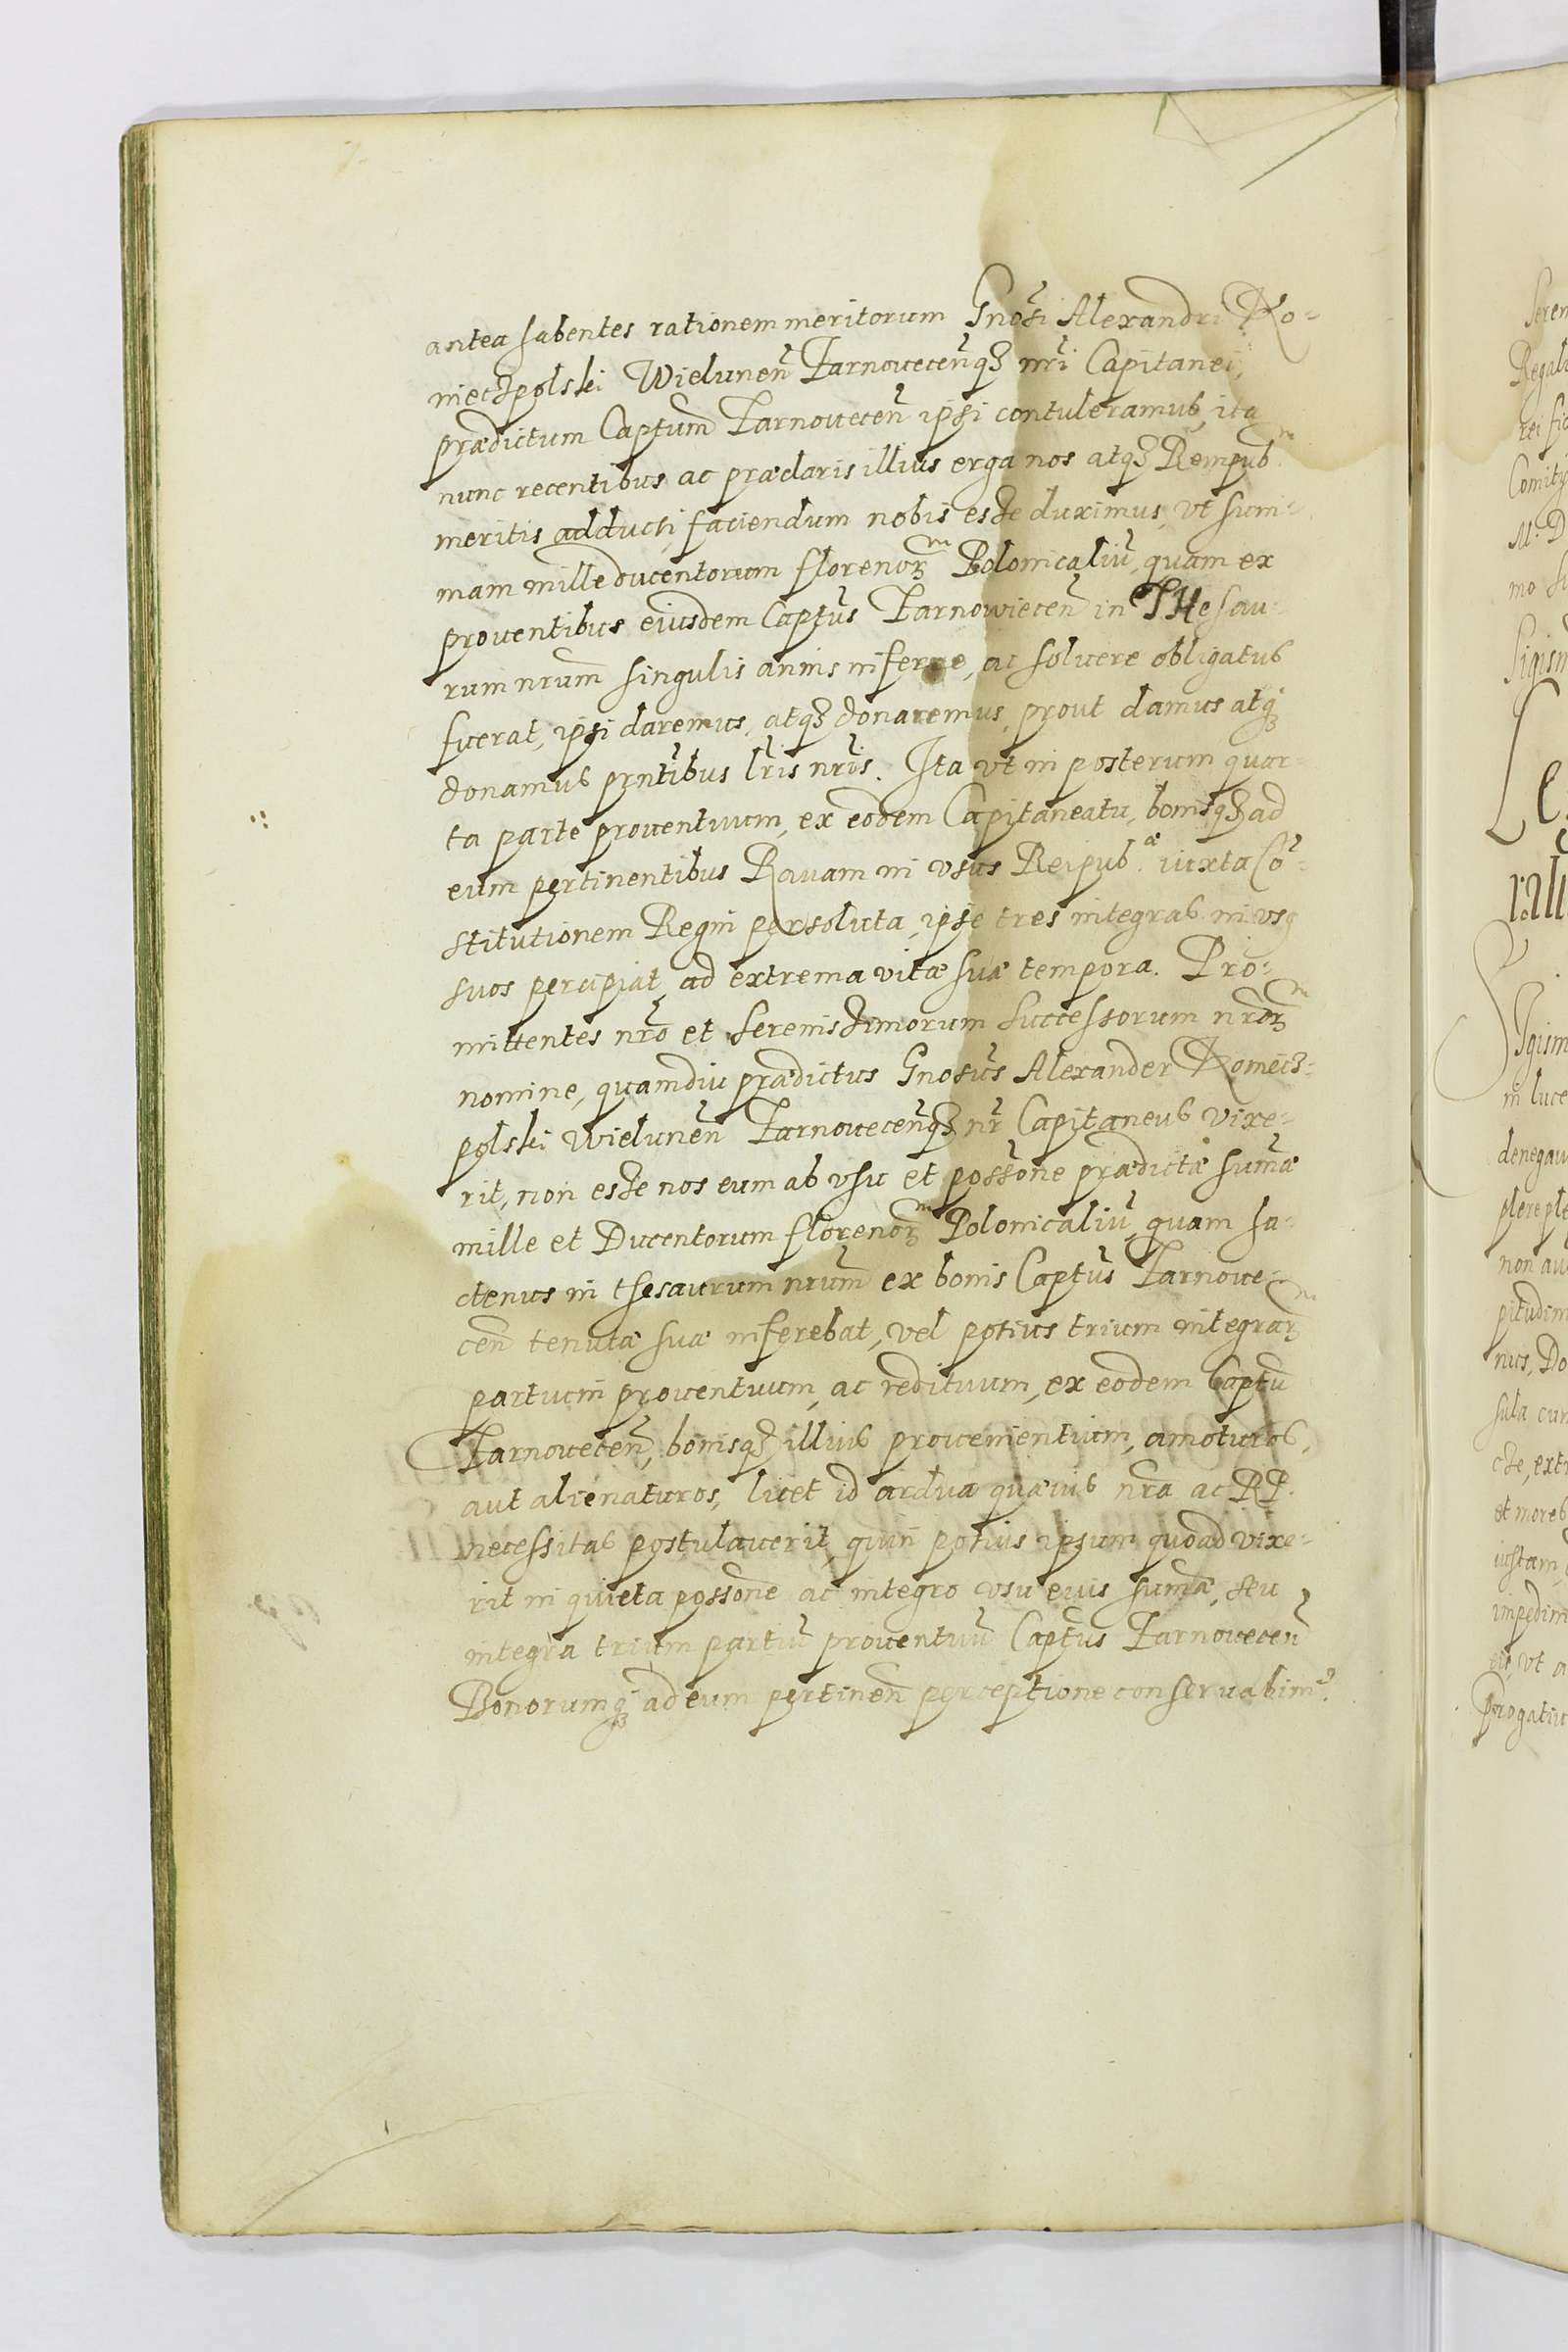 antea habentes rationem meritorum Gnosi Alexandri Ko-
niectzpolski Wielunen̄ Tarnouecen̄qȝ nr̄i Capitanei,
prædictum Captum̄ Tarnouecen̄ ipsi contuleramus, ita
nunc recentibus ac præclaris illius erga nos atqȝ Rempub.m
meritis adducti, faciendum nobis esse duximus, vt sum-
mam mille ducentorum florenorm Polonicaliū, quam ex
prouentibus eiusdem Captūs Tarnowiecen̄ in THesau-
rum nrum̄ singulis annis inferre, ac soluere obligatus
fuerat, ipsi daremus, atqȝ donaremus, prout damus atqȝ
donamus pn̄tibus lr̄is nr̄is. Ita vt in posterum quar-
ta parte prouentuum, ex eodem Capitaneatu, bonisqȝ ad
eum pertinentibus Rauam in vsus Reipub.æ iuxta Cō-
stitutionem Regni persoluta, ipse tres integras in vsq
suos percipiat, ad extrema vitæ suæ tempora. Pro-
mittentes nr̄o et serenissimorum successorum nr̄orm
nomine, quamdiu prædictus Gnosus Alexander Koniecz-
polski Wielunen̄ Tarnouecen̄qȝ nr̄ Capitaneus vixe-
rit, non esse nos eum ab vsu et possone prædictæ sum̄æ
mille et Ducentorum florenorm Polonicaliū, quam ha-
ctenus in thesaurum nrum̄ ex bonis Captūs Tarnoue-
cen̄ tenutæ suæ inferebat, vel potius trium integrarm
partium prouentuum, ac redituum, ex eodem Captu
Tarnouecen̄, bonisqȝ illius prouenientium, amoturos,
aut alienaturos, licet id ardua quæuis nr̄a ac RP.
necessitas postulauerit, quin potius ipsum quoad vixe-
rit in quieta possone ac integro vsu eius sum̄æ, seu
integra trium partiū prouentuū Captūs Tarnouecen̄
Bonorumqȝ ad eum pertinen̄ perceptione conseruabim9.